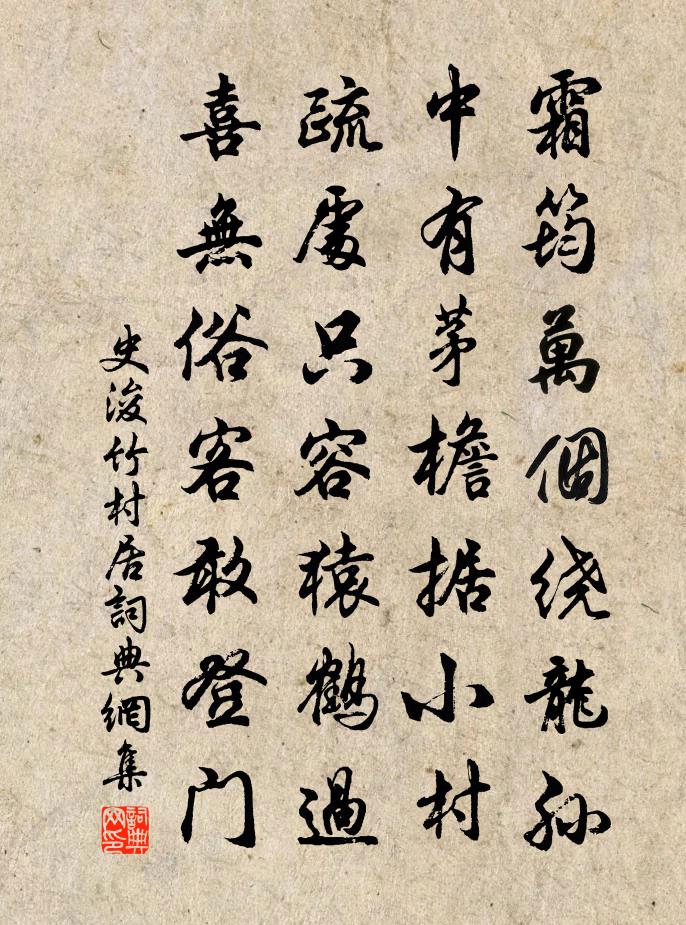 霜筠萬個绕龍孫
中有茅檐据小村
疏處只容猿鶴過
喜無俗客敢登门
史浚竹村居詞典網集
詞典网印